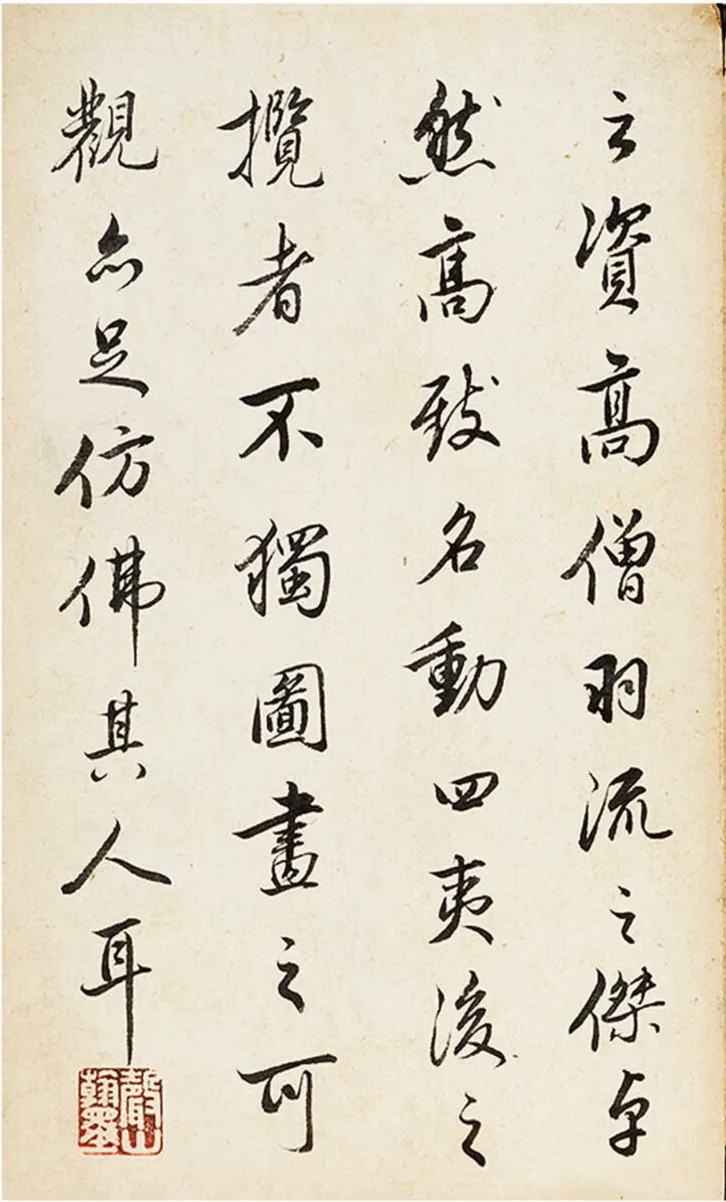 之資高僧羽流之傑卓
然高致名動四夷後之
攬者不獨圖畫之可
觀亦足仿佛其人耳
聲山翰墨